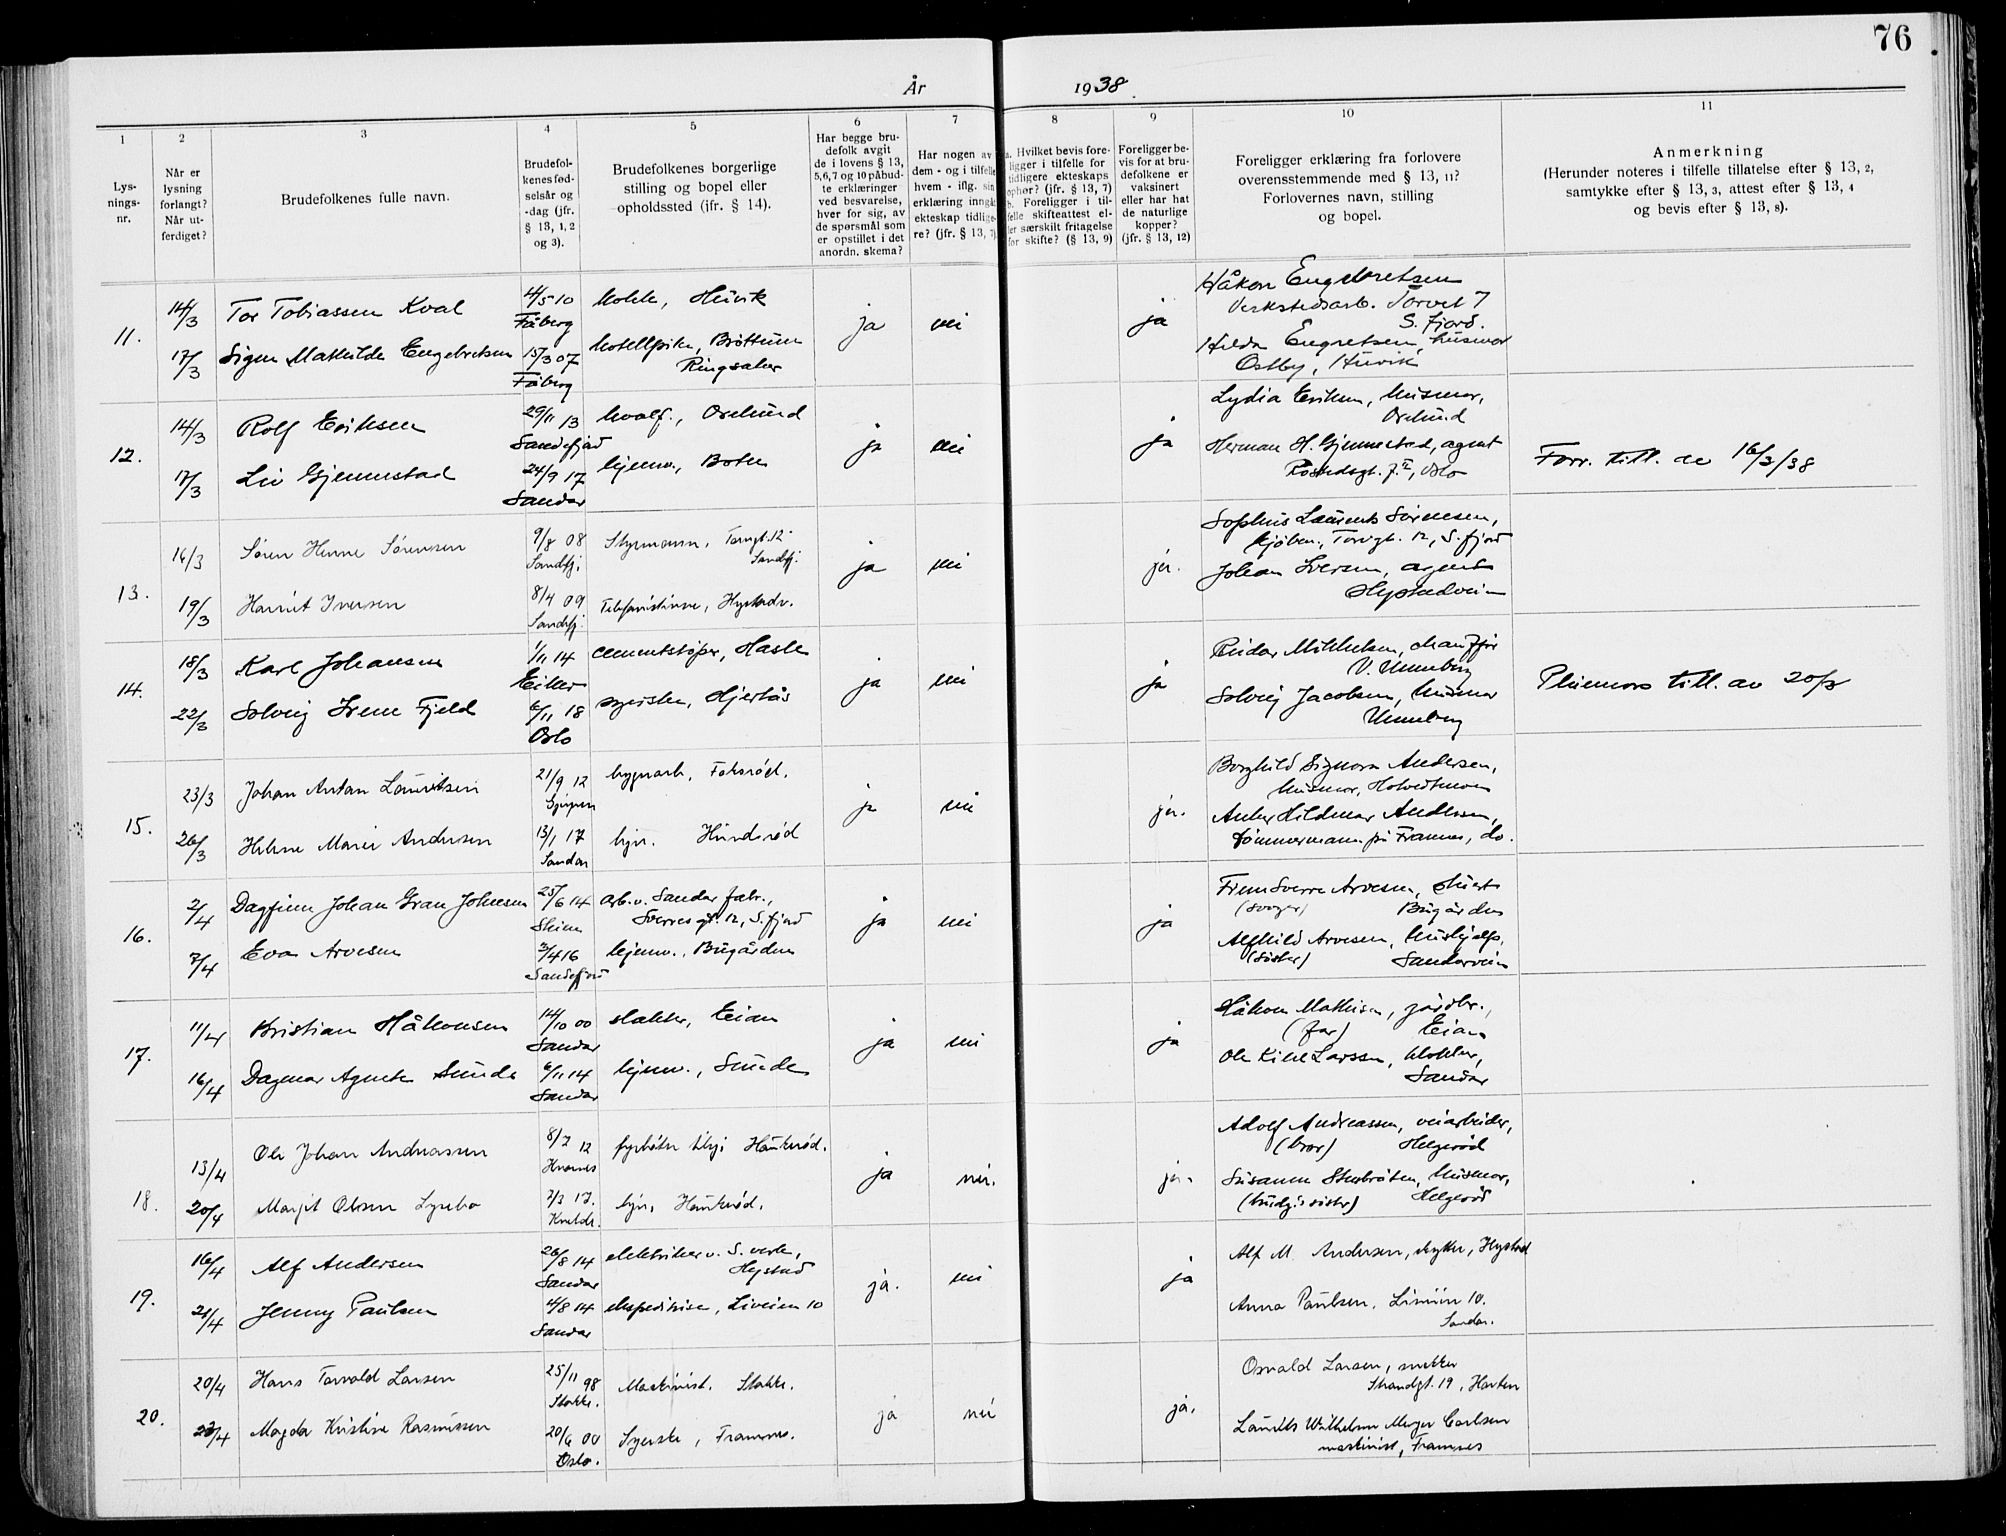 76
År 1938.
1 2 3 4 5 6 7 8 9 10 11
Lys-
nings-
nr.
Når er
lysning
forlangt?
Når ut-
ferdiget?
Brudefolkenes fulle navn.
Brudefol-
kenes fød-
selsår og
-dag (jfr.
§ 13, 1, 2
og 3).
Brudefolkenes borgerlige
stilling og bopel eller
opholdssted (jfr. § 14).
Har begge bru-
defolk avgit
de i lovens § 13,
5,6,7 og 10 påbud-
te erklæringer
ved besvarelse,
hver for sig, av
de spørsmål som
er opstillet i det
anordn. skema?
Har nogen av
dem - og i tilfelle
hvem - iflg. sin
erklæring inngåt
ekteskap tidlige-
re? (jfr. § 13, 7)
a. Hvilket bevis fore-
ligger i tilfelle for
tidligere ekteskaps
ophør? (jfr. § 13, 7)
b. Foreligger i til-
felle skifteattest el-
ler særskilt fritagelse
for skifte? (§ 13, 9)
Foreligger be-
vis for at bru-
defolkene er
vaksinert
eller har hat
de naturlige
kopper?
(jfr. § 13, 12)
Foreligger erklæring fra forlovere
overensstemmende med § 13, 11?
Forlovernes navn, stilling
og bopel.
Anmerkning
(Herunder noteres i tilfelle tillatelse efter § 13, 2,
samtykke efter § 13, 3, attest efter § 13, 4
og bevis efter § 13, 8).
11.
14/3 Tor Tobiassen Kval 4/5 10 Fåberg
kokk, Huvik
17/3 Signe Mathilde Engebretsen 15/3 07 Fåberg
hotellpike, Brøttum
Ringsaker
ja nei ja
Håkon Engebretsen
Verkstedsarb. Torvet 7
S. fjord.
Hilda Engretsen, husmor
Østby, Huvik
12.
14/3 Rolf Eriksen 29/11 13 Sandefjord
hvalf.,
17/3 Liv Gjennestad 24/9 17 Sandar
hjemv.,
ja nei ja
Lydia Eriksen, husmor,
Herman H. Gjennestad, agent
Oslo
Forr. till. av 16/3/38
13.
16/3 Søren Henne Sørensen 9/8 08 Sandefj.
Styrmann, Torvgt. 12
Sandefj.
19/3 Harriet Iversen 8/4 09 Sandefj.
Telefonistinne, Hystadv.
ja nei ja.
Sophus Laurents Sørensen,
kjøbm., Torvgt. 12, S. fjord
Johan Iversen, agent
Hystadveien
14.
18/3 Karl Johansen 1/11 14 Eiker
cementstøper, Hasle
22/3 Solveig Irene Fjeld 6/11 18 Oslo
syerske, Hjertås
ja nei ja
Reidar Mikkelsen, chauffør
V. Unneberg
Solveig Jacobsen, husmor
Unneberg
till. av 20/3
15.
23/3 Johan Anton Lauritsen 21/9 12
bygnarb, Fokserød.
26/3 Helene Marie Andersen 13/1 17 Sandar
hjv. Hundsrød
ja nei ja.
Borghild Signora Andersen,
husmor,
Anker Hildmar Andersen,
tømmermann på Framnes, do.
16.
2/4 Dagfinn Johan Gran Johnsen 25/6 14 Skien
arb. v. Sandar fabr.,
Sverres gt. 12, S. fjord
7/4 Eva Arvesen 3/4 16 Sandefjord
hjemv., Bugården
ja nei ja
Sverre Arvesen,
(svoger) Bugården
Alfhild Arvesen, hushjelp,
(søster) Sandarveien
17.
11/4 Kristian Håkonsen 14/10 00 Sandar
stakker, Eian
16/4 Dagmar Agnete Sunde 6/11 14 Sandar
hjemv., Sunde
ja nei ja
Håkon Mathisen, gårdbr.,
(far) Eian
Ole Kihl Larssen, klokker,
Sandar
18.
13/4 Ole Johan Andreassen 8/7 12
fyrbøter Haukerød.
20/4 Margit Olsen Lysebo 7/3 17.
hjv, Haukerød.
ja nei. ja.
Adolf Andreassen, veiarbeider,
(bror) Helgerød
Susanne Stubråten, husmor,
(brudg's søster) Helgerød
19.
16/4 Alf Andersen 26/8 14 Sandar
elektriker v. S. verk,
Hystad
21/4 Jenny Paulsen 4/8 14 Sandar
ekspeditrise, Liveien 10
ja. nei ja
Alf M. Andersen, skytter, Hystad
Anna Paulsen, Liveien 10.
Sandar.
20.
20/4 Hans Torvald Larsen 25/11 98 Stokke.
Maskinist. Stokke.
23/4 Magda Kristine Rasmussen 20/6 00 Oslo.
Syerske, Framnes.
ja nei ja.
Osvald Larsen, snekker
Strandgt. 19, Horten
Laurits Wilhelm Meyer Carlsen
maskinist, Framnes